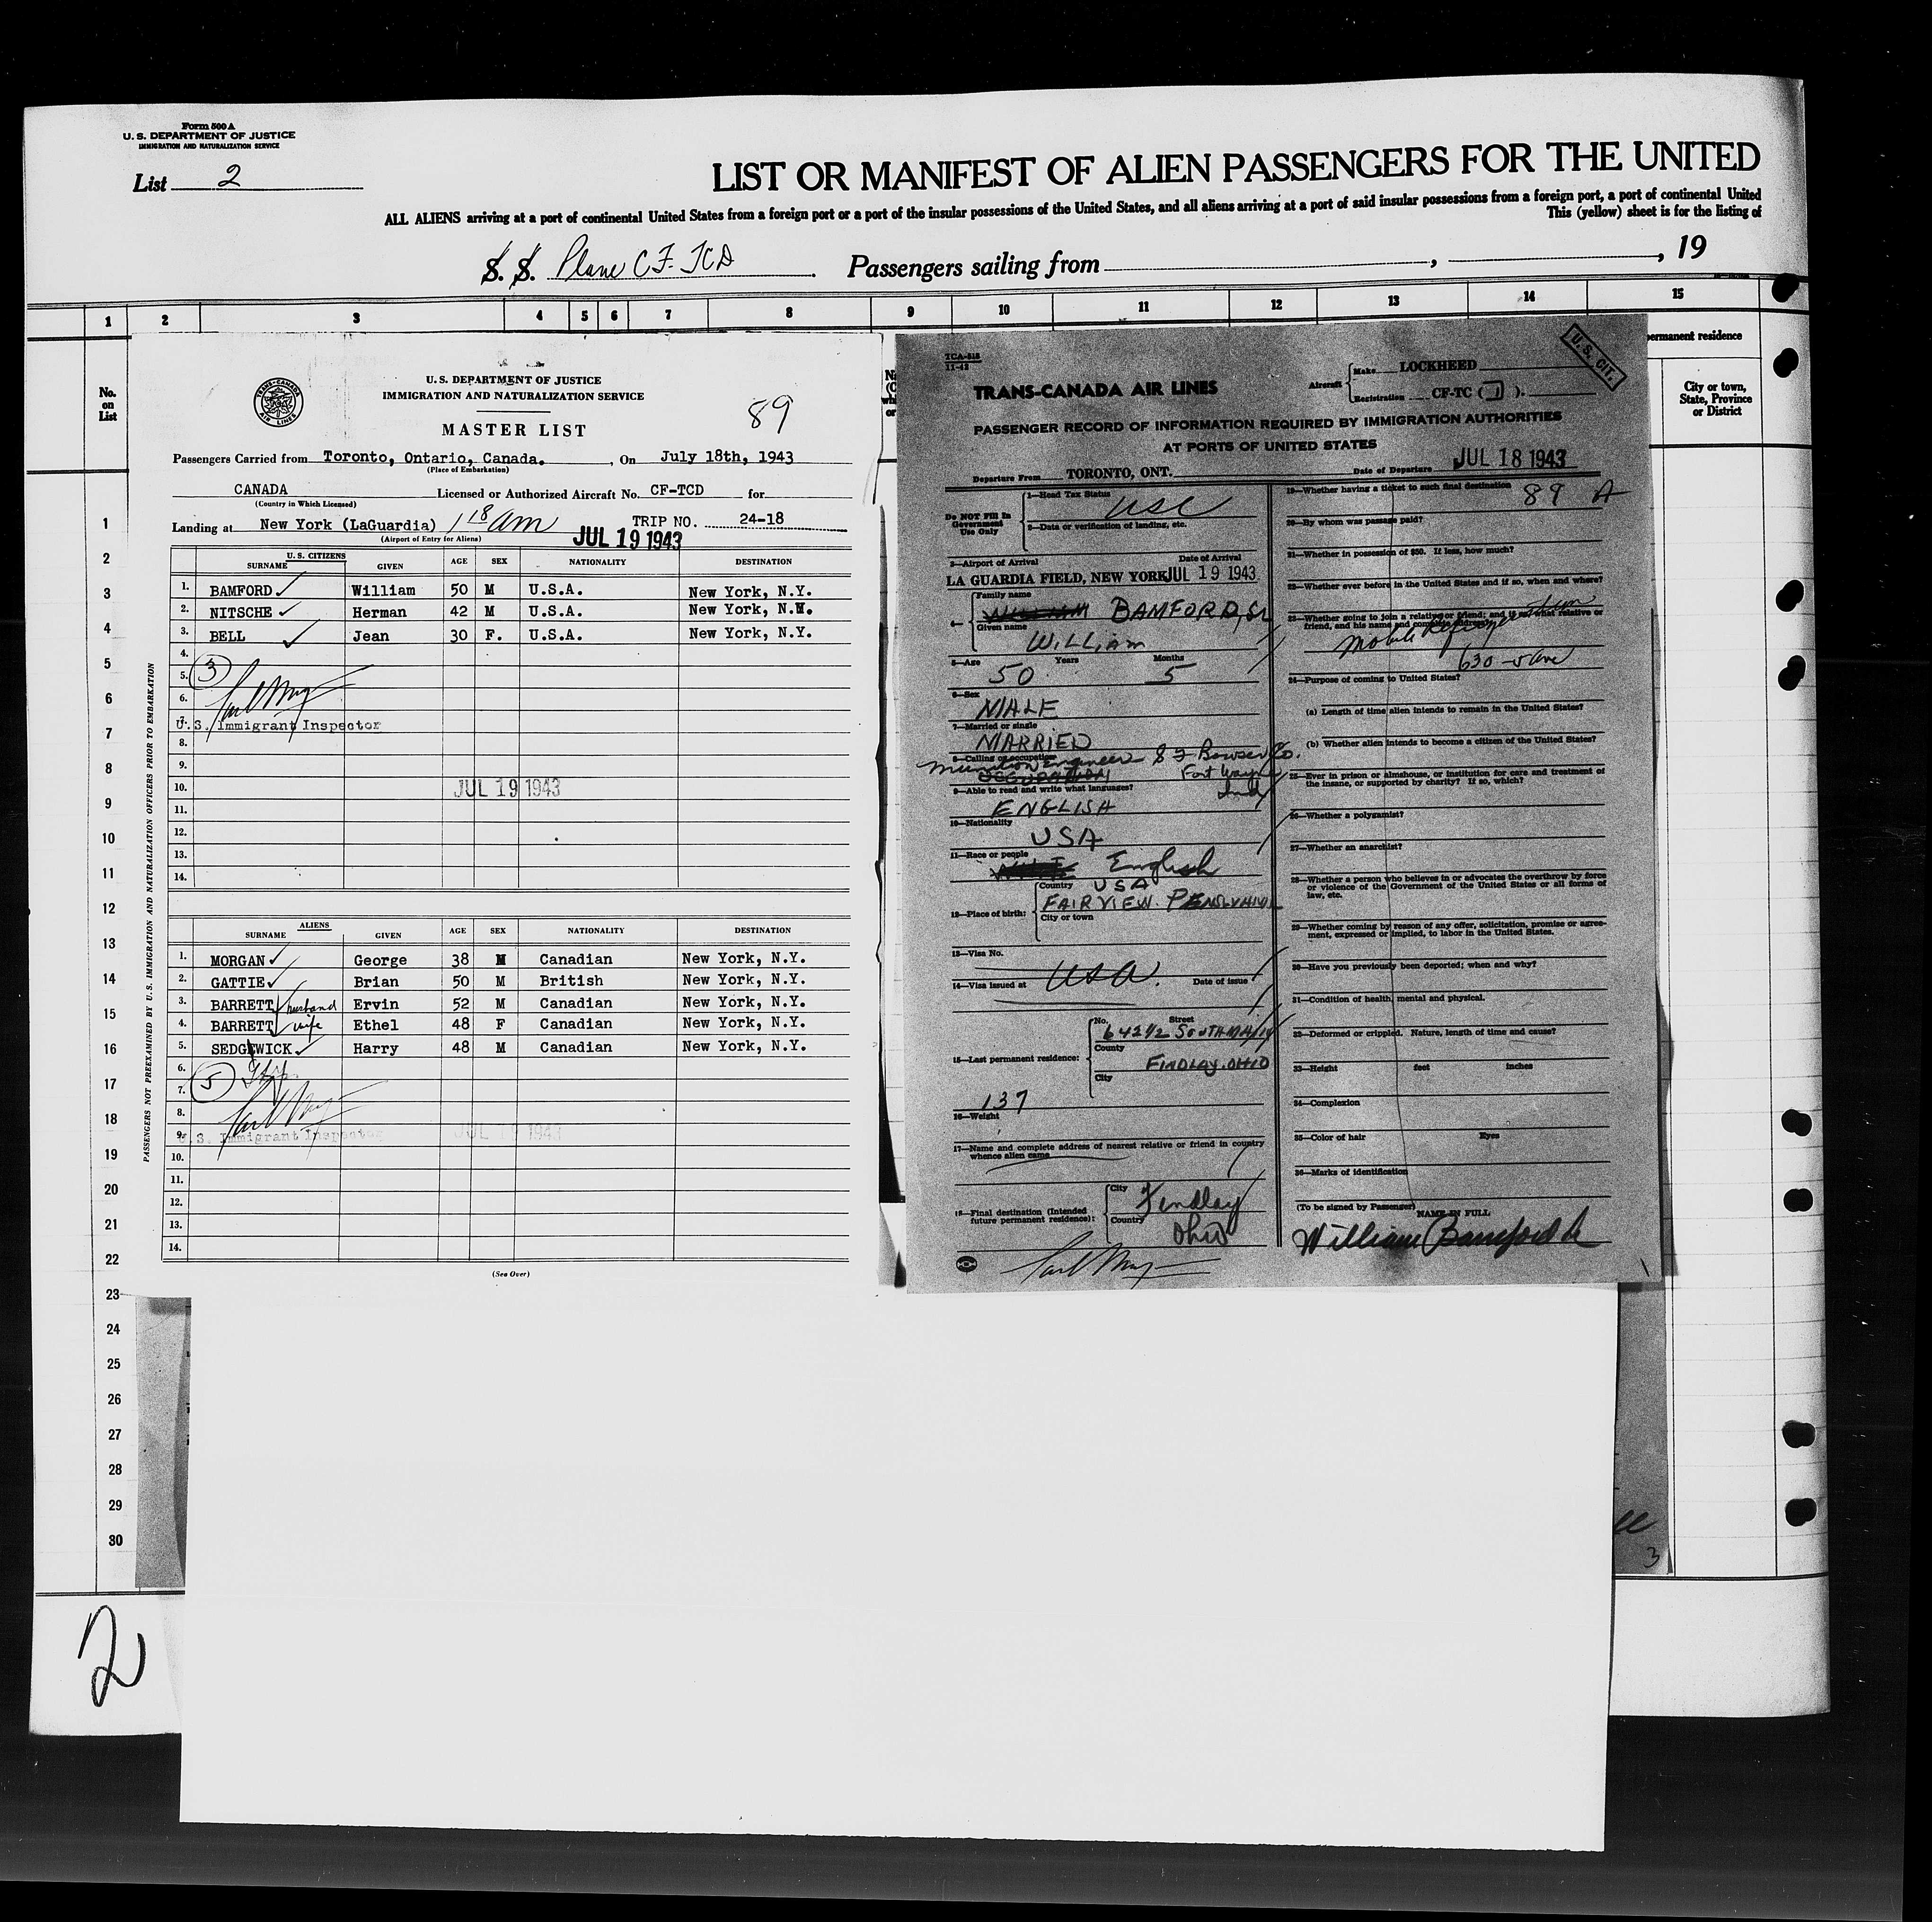 Form 500 A
U. S. DEPARTMENT OF JUSTICE
IMMIGRATION AND NATURALIZATION SERVICE
List 2
LIST OR MANIFEST OF ALIEN PASSENGERS FOR THE UNITED
ALL ALIENS arriving at a port of continental United States from a foreign port or a port of the insular possessions of the United States, and all aliens arriving at a port of said insular possessions from a foreign port, a port of continental United
This (yellow) sheet is for the listing of
S. S. Plane CF-TCD Passengers sailing from , , 19
1 2 3 4 5 6 7 8 9 10 11 12 13 14 15
No. on List
permanent residence
City or town, State, Province or District
1
2
3
4
5
6
7
8
9
10
11
12
13
14
15
16
17
18
19
20
21
22
23
24
25
26
27
28
29
30
2
TRANS-CANADA AIR LINES
U. S. DEPARTMENT OF JUSTICE
IMMIGRATION AND NATURALIZATION SERVICE
MASTER LIST
89
Passengers Carried from Toronto, Ontario, Canada. , On July 18th, 1943
(Place of Embarkation)
CANADA Licensed or Authorized Aircraft No. CF-TCD for
(Country in Which Licensed)
Landing at New York (LaGuardia) 1 18 am TRIP NO. 24-18
(Airport of Entry for Aliens)
JUL 19 1943
U.S. CITIZENS
SURNAME GIVEN AGE SEX NATIONALITY DESTINATION
1. BAMFORD William 50 M U.S.A. New York, N.Y.
2. NITSCHE Herman 42 M U.S.A. New York, N.Y.
3. BELL Jean 30 F. U.S.A. New York, N.Y.
4.
5. 3
6.
7.
U.S. Immigrant Inspector
8.
9.
10. JUL 19 1943
11.
12.
13.
14.
ALIENS
SURNAME GIVEN AGE SEX NATIONALITY DESTINATION
1. MORGAN George 38 M Canadian New York, N.Y.
2. GATTIE Brian 50 M British New York, N.Y.
3. BARRETT husband Ervin 52 M Canadian New York, N.Y.
4. BARRETT wife Ethel 48 F Canadian New York, N.Y.
5. SEDGEWICK Harry 48 M Canadian New York, N.Y.
6.
7. 5
8.
9. U.S. Immigrant Inspector JUL 19 1943
10.
11.
12.
13.
14.
(See Over)
PASSENGERS NOT PREEXAMINED BY U. S. IMMIGRATION AND NATURALIZATION OFFICERS PRIOR TO EMBARKATION
TCA-518
11-42
TRANS-CANADA AIR LINES
Aircraft Make LOCKHEED
Registration CF-TC ( ).
U. S. CIT.
PASSENGER RECORD OF INFORMATION REQUIRED BY IMMIGRATION AUTHORITIES
AT PORTS OF UNITED STATES
Departure From TORONTO, ONT. Date of Departure JUL 18 1943
Do NOT Fill In Government Use Only
1—Head Tax Status USC
2—Date or verification of landing, etc.
3—Airport of Arrival Date of Arrival
LA GUARDIA FIELD, NEW YORK JUL 19 1943
4— Family name BAMFORD, Sr
Given name
WILLIAM
5—Age Years Months
50 5
6—Sex
MALE
7—Married or single
MARRIED
8—Calling or occupation
Munition Engineer S F Bowser Co.
Fort Wayne
Ind
9—Able to read and write what languages?
ENGLISH
10—Nationality
USA
11—Race or people
English
12—Place of birth: Country USA
FAIRVIEW. PENSLVANIA
City or town
13—Visa No.
USA.
14—Visa issued at Date of issue
15—Last permanent residence: No. Street
642 1/2 SOUTH MAIN
County
FINDLAY. OHIO
City
137
16—Weight
17—Name and complete address of nearest relative or friend in country whence alien came
18—Final destination (Intended future permanent residence): City Findlay
Country Ohio
19—Whether having a ticket to such final destination 89 A
20—By whom was passage paid?
21—Whether in possession of $50. If less, how much?
22—Whether ever before in the United States and if so, when and where?
23—Whether going to join a relative or friend; and if so, what relative or friend, and his name and complete address
630 - 5 ave
24—Purpose of coming to United States?
(a) Length of time alien intends to remain in the United States?
(b) Whether alien intends to become a citizen of the United States?
25—Ever in prison or almshouse, or institution for care and treatment of the insane, or supported by charity? If so, which?
26—Whether a polygamist?
27—Whether an anarchist?
28—Whether a person who believes in or advocates the overthrow by force or violence of the Government of the United States or all forms of law, etc.
29—Whether coming by reason of any offer, solicitation, promise or agreement, expressed or implied, to labor in the United States.
30—Have you previously been deported; when and why?
31—Condition of health, mental and physical.
32—Deformed or crippled. Nature, length of time and cause?
33—Height feet inches
34—Complexion
35—Color of hair Eyes
36—Marks of identification
(To be signed by Passenger) NAME IN FULL
William Bamford Sr
3